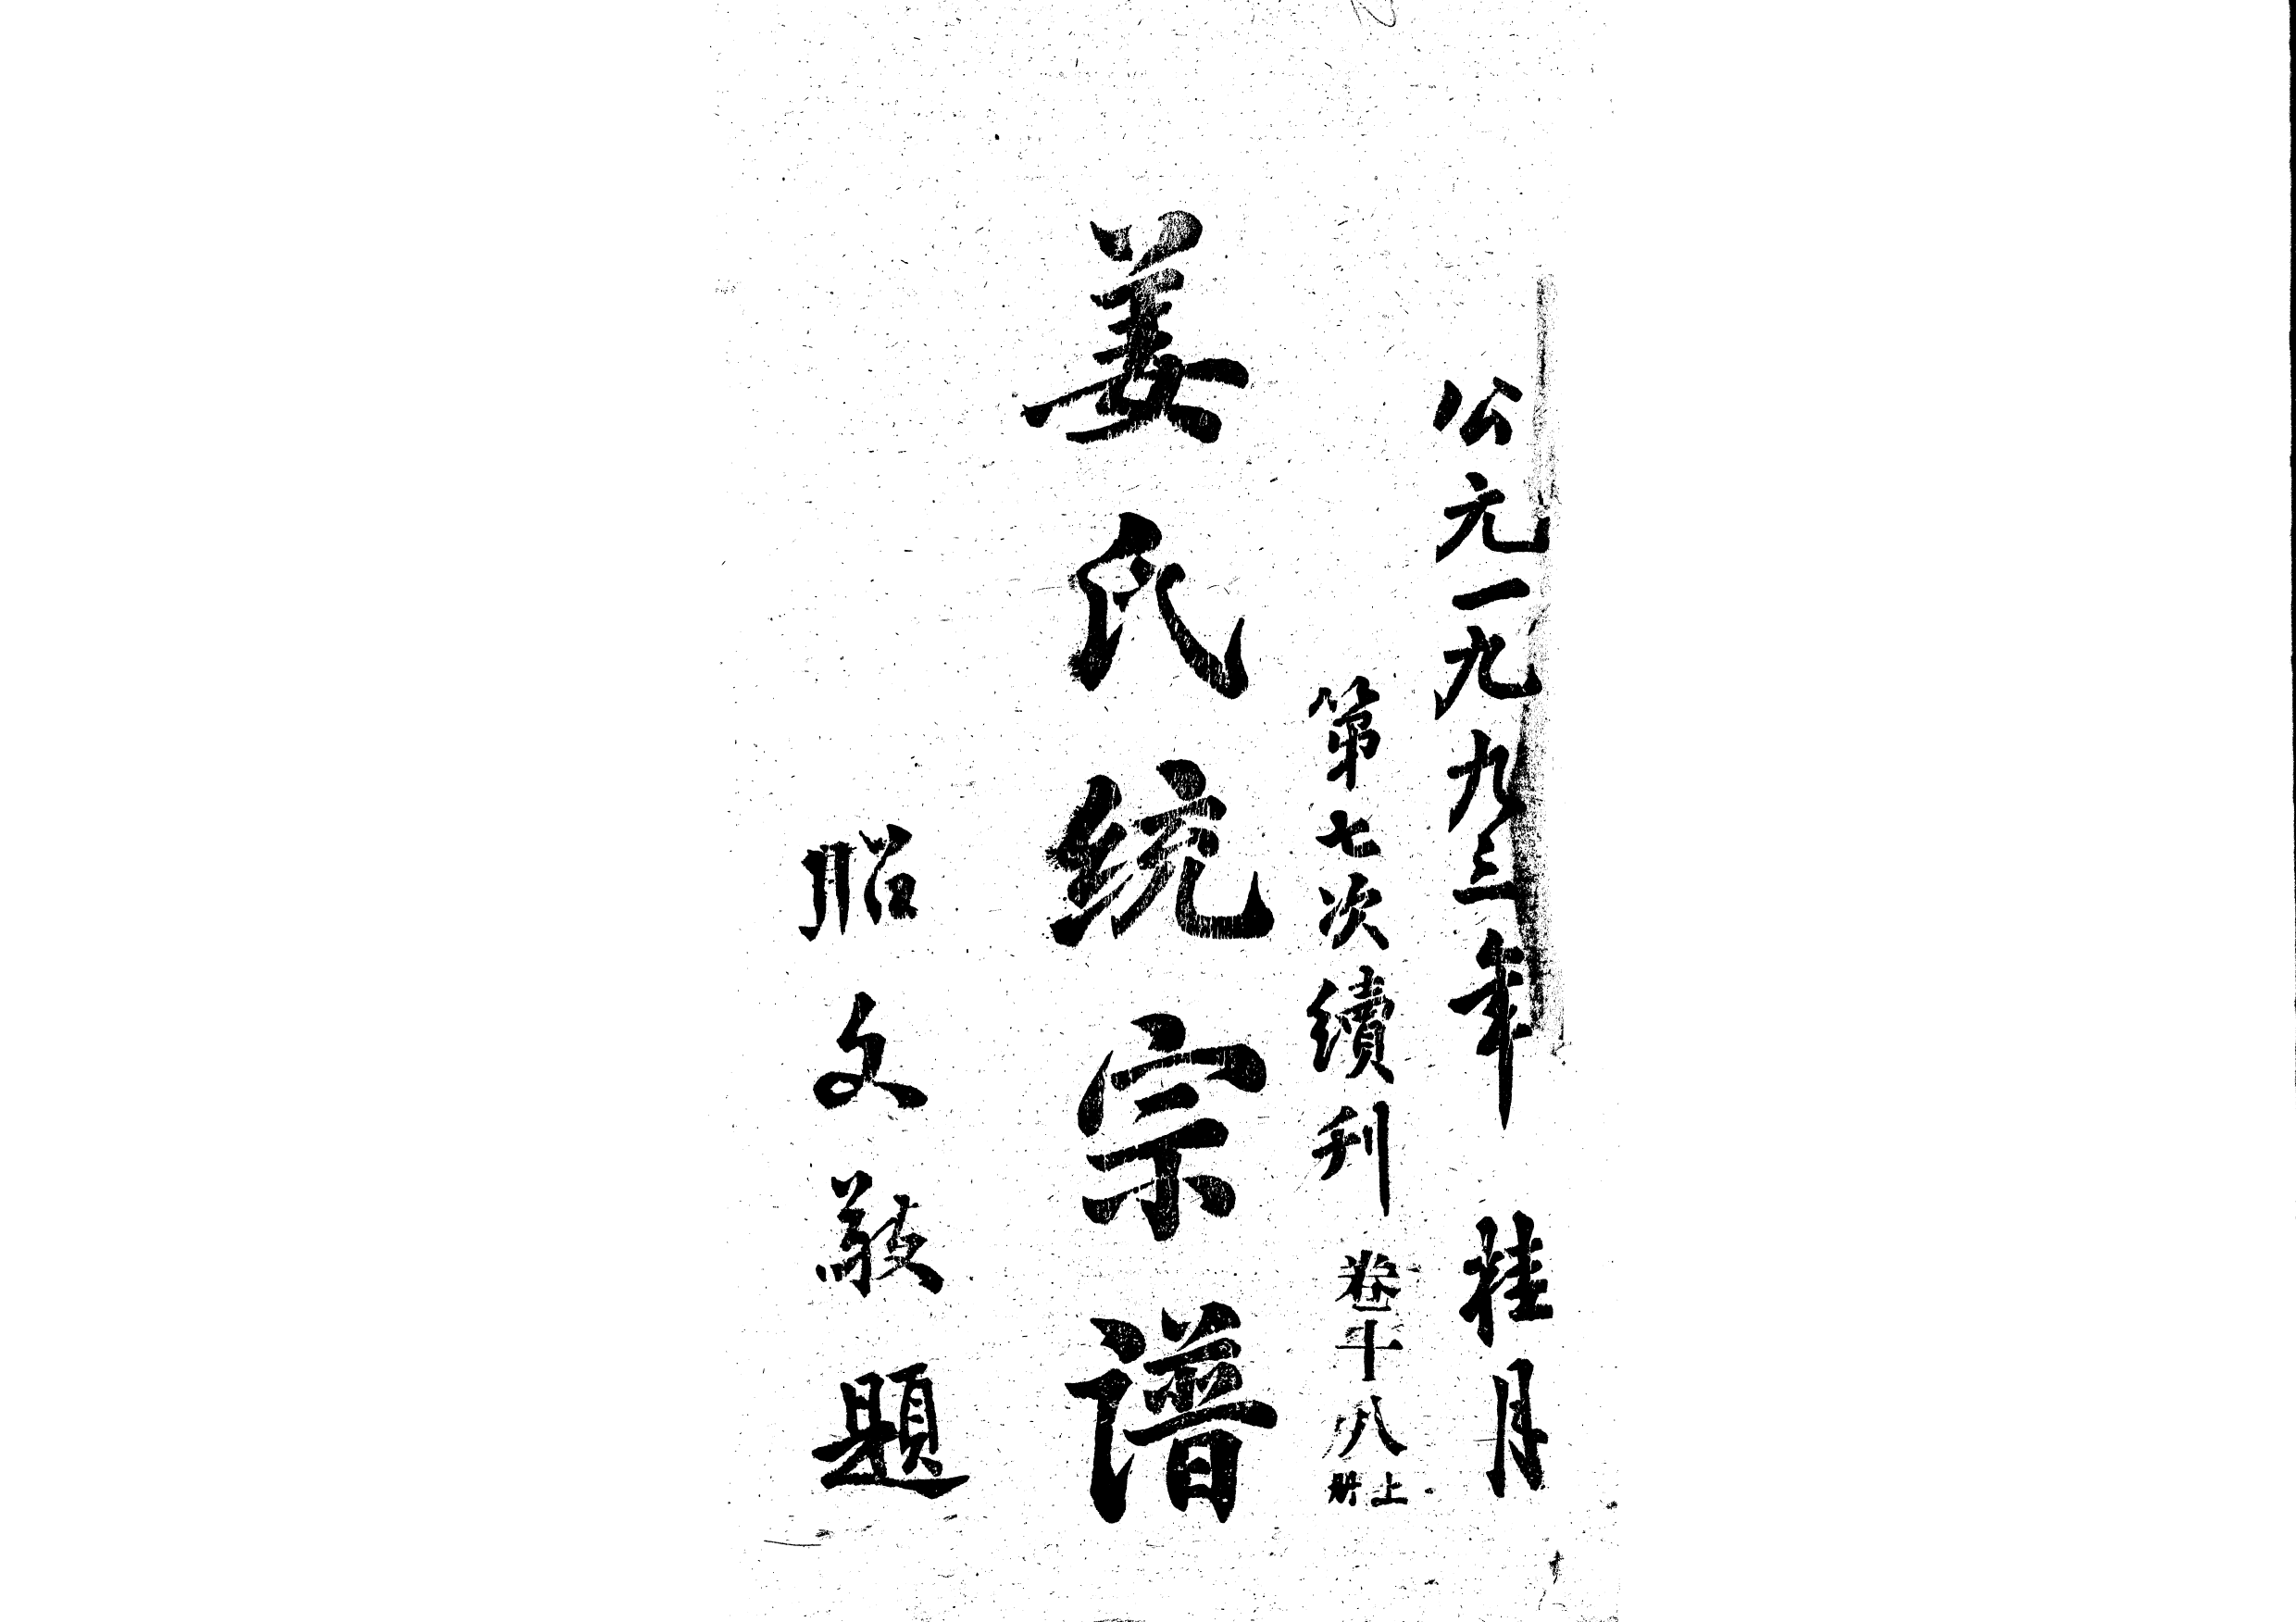 公元一九九三年 桂月
第七次續刊 卷十八 上册
姜氏统宗谱
昭文敬題